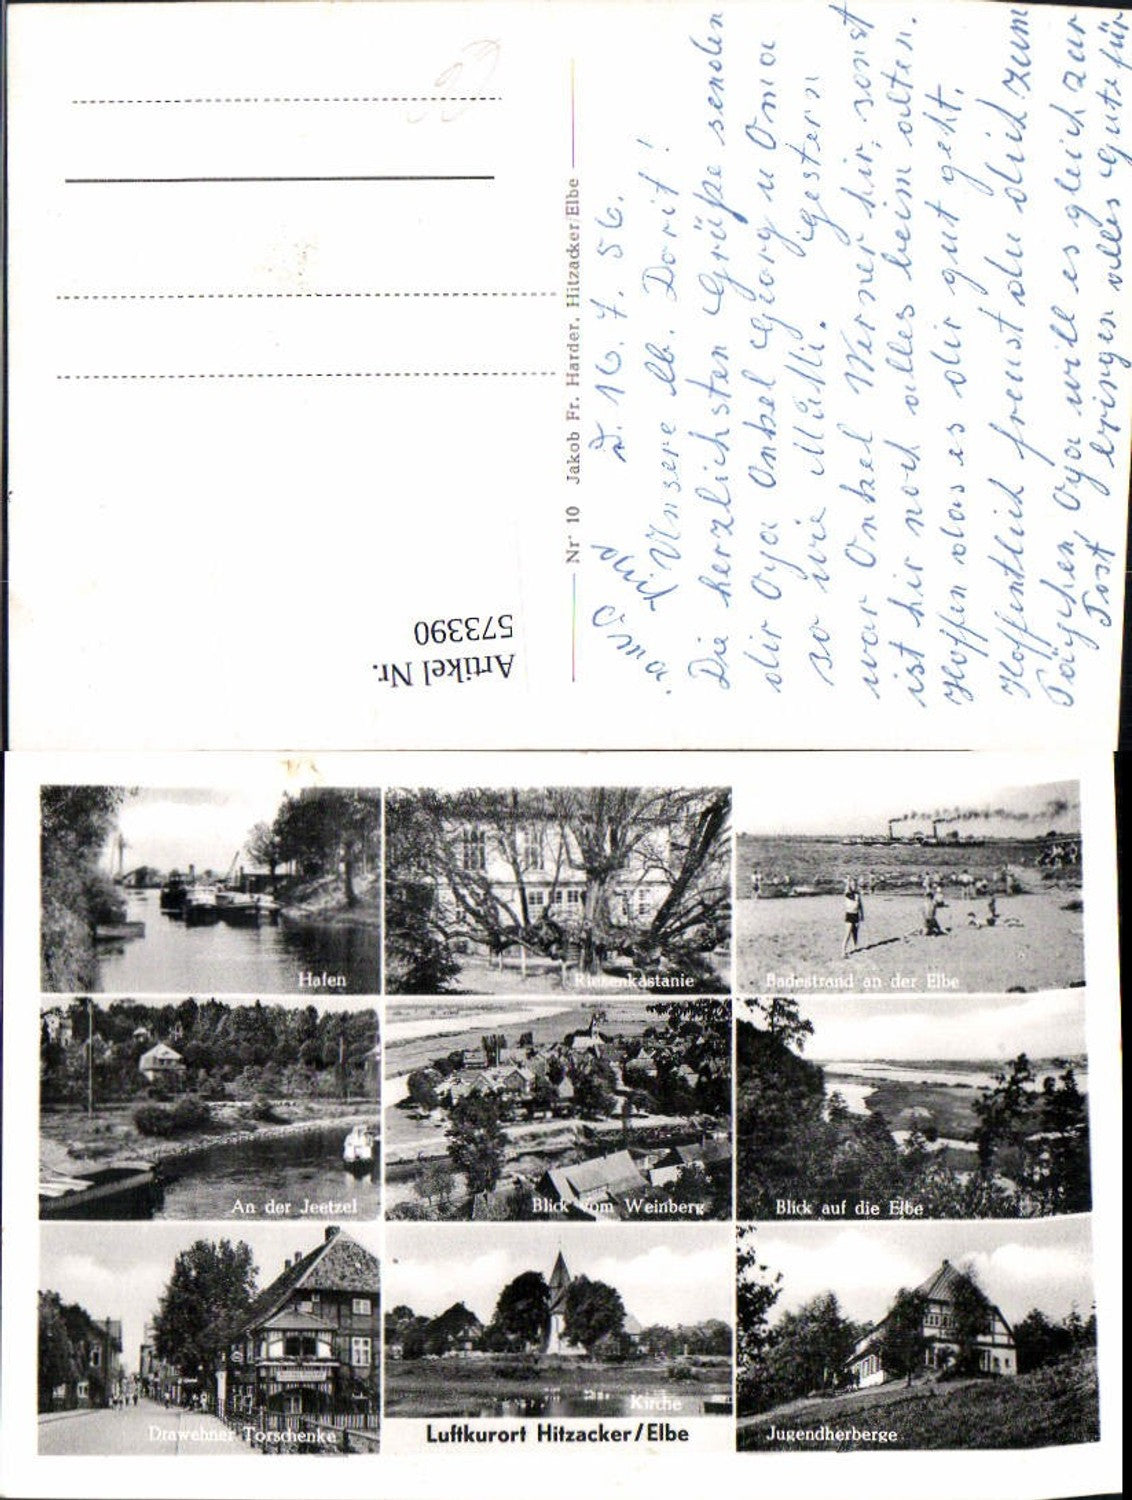 Artikel Nr.
573390
Nr 10 Jakob Fr. Harder, Hitzacker/Elbe
D. 16. 7. 56.
Unsere lb. Dorit!
Die herzlichsten Grüße senden
dir Opa Onkel Georg u Oma
so wie Mutti. gestern
war Onkel Werner hir, sonst
ist hir noch alles beim alten.
Hoffen das es dir gut geht.
Hoffentlich freust du dich zum
Opa will es gleich zur
Post bringen alles Gute für
Hafen
Riesenkastanie
Badestrand an der Elbe
An der Jeetzel
Blick vom Weinberg
Blick auf die Elbe
Drawehner Torschenke
Kirche
Jugendherberge
Luftkurort Hitzacker/Elbe